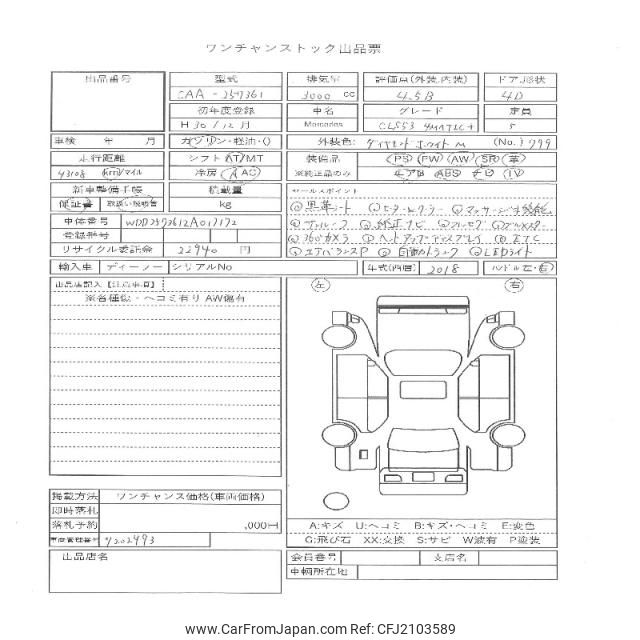 ワンチャンストック出品票
出品番号
型式
CAA-257361
排気量
3000 cc
評価点(外装、内装)
4.5B
ドア、形状
4D
初年度登録
H30/12月
車名
Mercedes
グレード
CLS53 4MATIC+
定員
5
車検 年 月
ガソリン・軽油・()
外装色: ダイヤモンドホワイトM (No.) 799
走行距離
43108 Km/マイル
シフト AT/MT
冷房 A AC
装備品
※純正品のみ
PS PW AW SR 革
エアB ABS ナビ TV
新車整備手帳
保証書 取扱い説明書
積載量
kg
セールスポイント
黒革シート
車体番号 WDD2573612A017172
登録番号
純正ナビ
360°カメラ ヘッドアップディスプレイ ETC
リサイクル委託金 22940 円
自動トランク LEDライト
輸入車 ディーラー シリアルNo
年式(西暦) 2018 ハンドル 左・右
出品店記入【注意事項】
※各種傷・ヘコミ有り AW傷有
左 右
掲載方法 ワンチャンス価格(車両価格)
即時落札
落札予約 ,000円
車両管理番号 4202493
A:キズ U:ヘコミ B:キズ・ヘコミ E:変色
G:飛び石 XX:交換 S:サビ W波有 P塗装
出品店名
会員番号 支店名
車輌所在地
www.CarFromJapan.com Ref: CFJ2103589